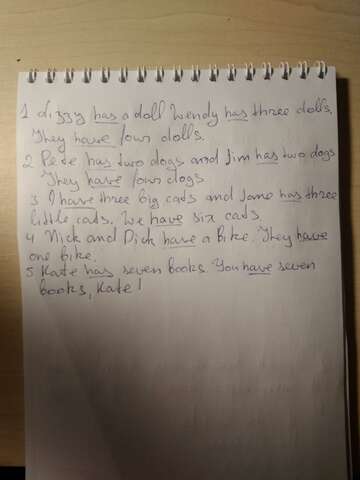 1 Lizzy has a doll Wendy has three dolls.
They have four dolls.
2 Pete has two dogs and Jim has two dogs
They have four dogs.
3 I have three big cats and Jane has three
little cats. We have six cats.
4 Nick and Dick have a bike. They have
one bike.
5 Kate has seven books. You have seven
books, Kate!